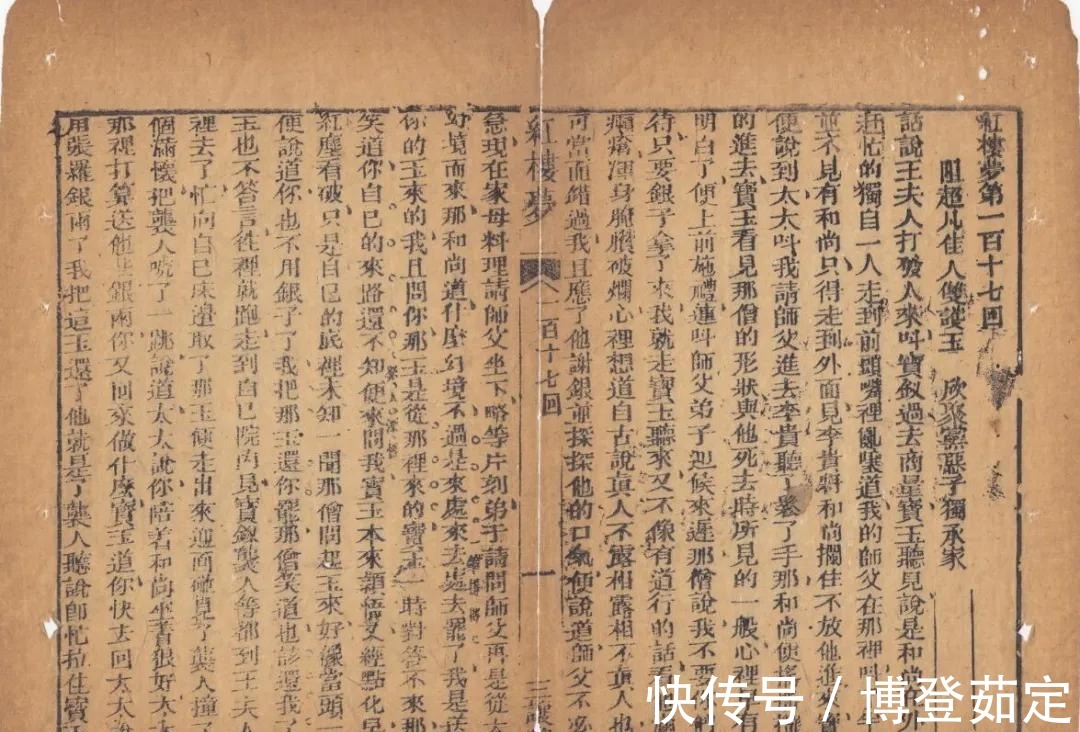 紅樓夢第一百十七回
阻超凡佳人雙護玉　欣聚黨惡子獨承家
話說王夫人打發人來叫寶釵過去商量寶玉聽見說是和尚在外
赶忙的獨自一人走到前頭嘴裡亂嚷道我的師父在那裡叫
並不見有和尚只得走到外面見李貴將和尚攔住不放他進來寶
便說到太太叫我請師父進去李貴聽了鬆了手那和尚便搖
的進去寶玉看見那僧的形狀與他死去時所見的一般心裡
明白了便上前施禮連叫師父弟子迎候來遲那僧說我不要
待只要銀子拿了來我就走寶玉聽來又不像有道行的話
癩瘡渾身腌臢破爛心裡想道自古說真人不露相露相不真人也
可當面錯過我且應了他謝銀並探探他的口氣便說道師父不必
紅樓夢　一百十七回　一
急現在家母料理請師父坐下略等片刻弟子請問師父可是從
幻境而來那和尚道什麼幻境不過是來處來去處去罷了我是送
你的玉來的我且問你那玉是從那裡來的寶玉一時對答不來那
笑道你自已的來路還不知便來問我寶玉本來穎悟又經點化早
紅塵看破只是自已的底裡未知一聞那僧問起玉來好像當頭一
便說道你也不用銀子了我把那玉還你罷那僧笑道也該還我了
玉也不答言往裡就跑走到自已院內見寶釵襲人等都到王夫人
裡去了忙向自已床邊取了那玉便走出來迎面碰見了襲人撞了
個滿懷把襲人唬了一跳說道太太說你陪著和尚坐著狠好太太
那裡打算送他些銀兩你又回來做什麼寶玉道你快去回太太說
用張羅銀兩了我把這玉還了他就是了襲人聽說卽忙拉住寶玉
快传号 / 博登茹定